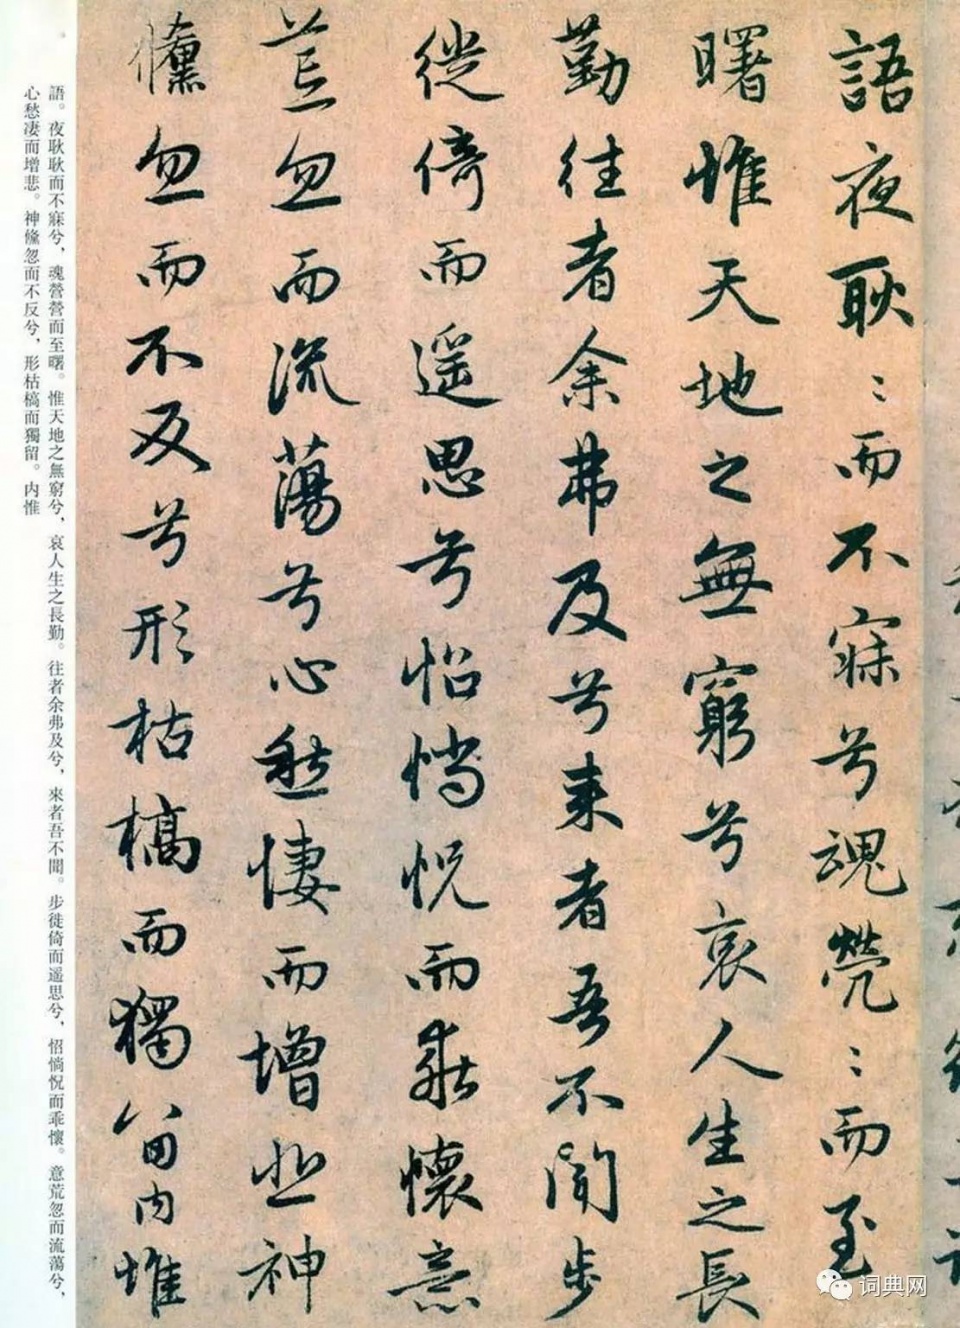 語夜耿〻而不寐兮魂煢〻而至
曙惟天地之無窮兮哀人生之長
勤往者余弗及兮來者吾不聞步
徙倚而遥思兮怊惝怳而乖懷意
荒忽而流蕩兮心愁悽而增悲神
儵忽而不反兮形枯槁而獨留内惟
語。夜耿耿而不寐兮，魂營營而至曙。惟天地之無窮兮，哀人生之長勤。往者余弗及兮，來者吾不聞。步徙倚而遥思兮，怊惝怳而乖懷。意荒忽而流蕩兮，
心愁凄而增悲。神儵忽而不反兮，形枯槁而獨留。内惟
词典网